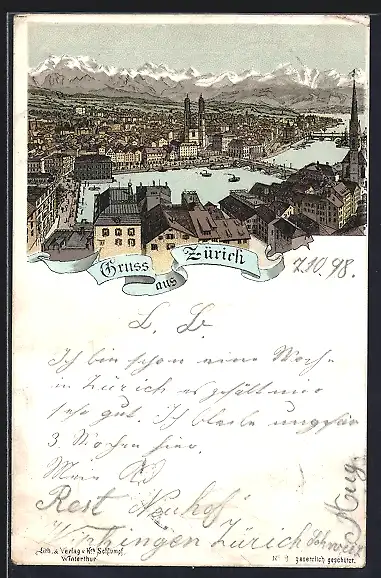 Gruss aus Zürich
7.10.98.
L. L.
Ich bin schon eine Woche
in Zürich es gefällt mir
sehr gut. Ich bleibe ungefähr
3 Wochen hier.
Mein
Rest Neuhof
Zürich Schweiz
Aug.
Lith. & Verlag v. Kth. Schlumpf,
Winterthur.
No. 1 gesetzlich geschützt.